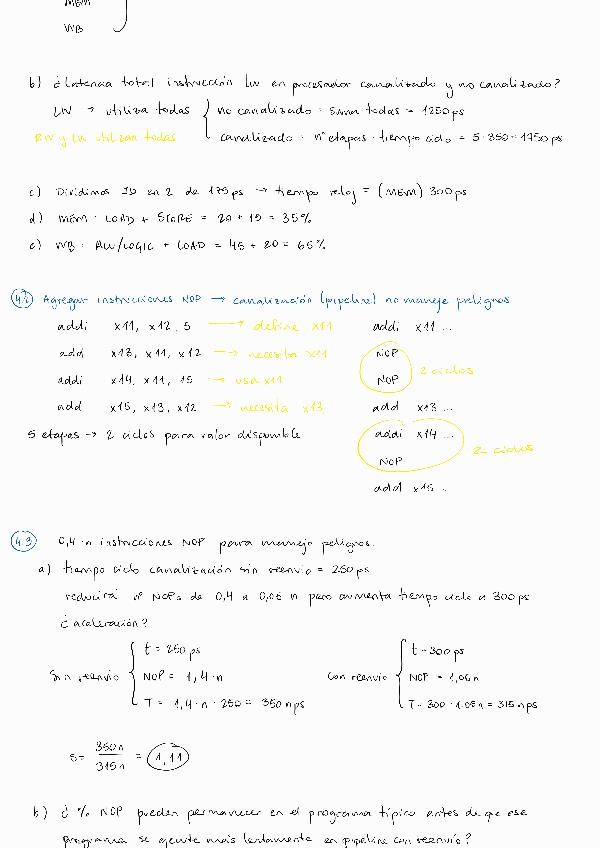 MEM
WB
b) ¿Latencia total instrucción LW en procesador canalizado y no canalizado?
LW → utiliza todas { no canalizado = suma todas = 1250 ps
RW y LW utilizan todas canalizado = nº etapas · tiempo ciclo = 5 · 350 = 1750 ps
c) Dividimos ID en 2 de 175 ps → tiempo reloj = (MEM) 300 ps
d) MEM = LOAD + STORE = 20 + 15 = 35%
e) WB = ALU/LOGIC + LOAD = 45 + 20 = 65%
4.2 Agregar instrucciones NOP → canalización (pipeline) no maneje peligros
addi x11, x12, 5 → define x11 addi x11 ...
add x13, x11, x12 → necesita x11 NOP
addi x14, x11, 15 → usa x11 NOP 2 ciclos
add x15, x13, x12 → necesita x13 add x13 ...
5 etapas → 2 ciclos para valor disponible addi x14 ...
NOP 2 ciclos
add x15 ...
4.3 0,4 · n instrucciones NOP para manejo peligros.
a) tiempo ciclo canalización sin reenvío = 250 ps
reducirá nº NOPs de 0,4 a 0,05 n pero aumenta tiempo ciclo a 300 ps
¿aceleración?
t = 250 ps t = 300 ps
Sin reenvío { NOP = 1,4 · n Con reenvío { NOP = 1,05 n
T = 1,4 · n · 250 = 350 n ps T = 300 · 1.05 n = 315 n ps
S = 350 n / 315 n = 1,11
b) ¿% NOP pueden permanecer en el programa típico antes de que ese
programa se ejecute más lentamente en pipeline con reenvío?